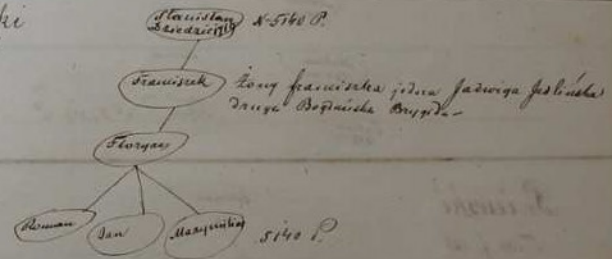 ki
Stanisław N-5140 P.
Dziedzic 1710
Franciszek Żony franciszka jedna Jadwiga Jeslińska
druga Bogdańska Brygida –
Floryan
Roman Jan Maxymilian 5140 P.